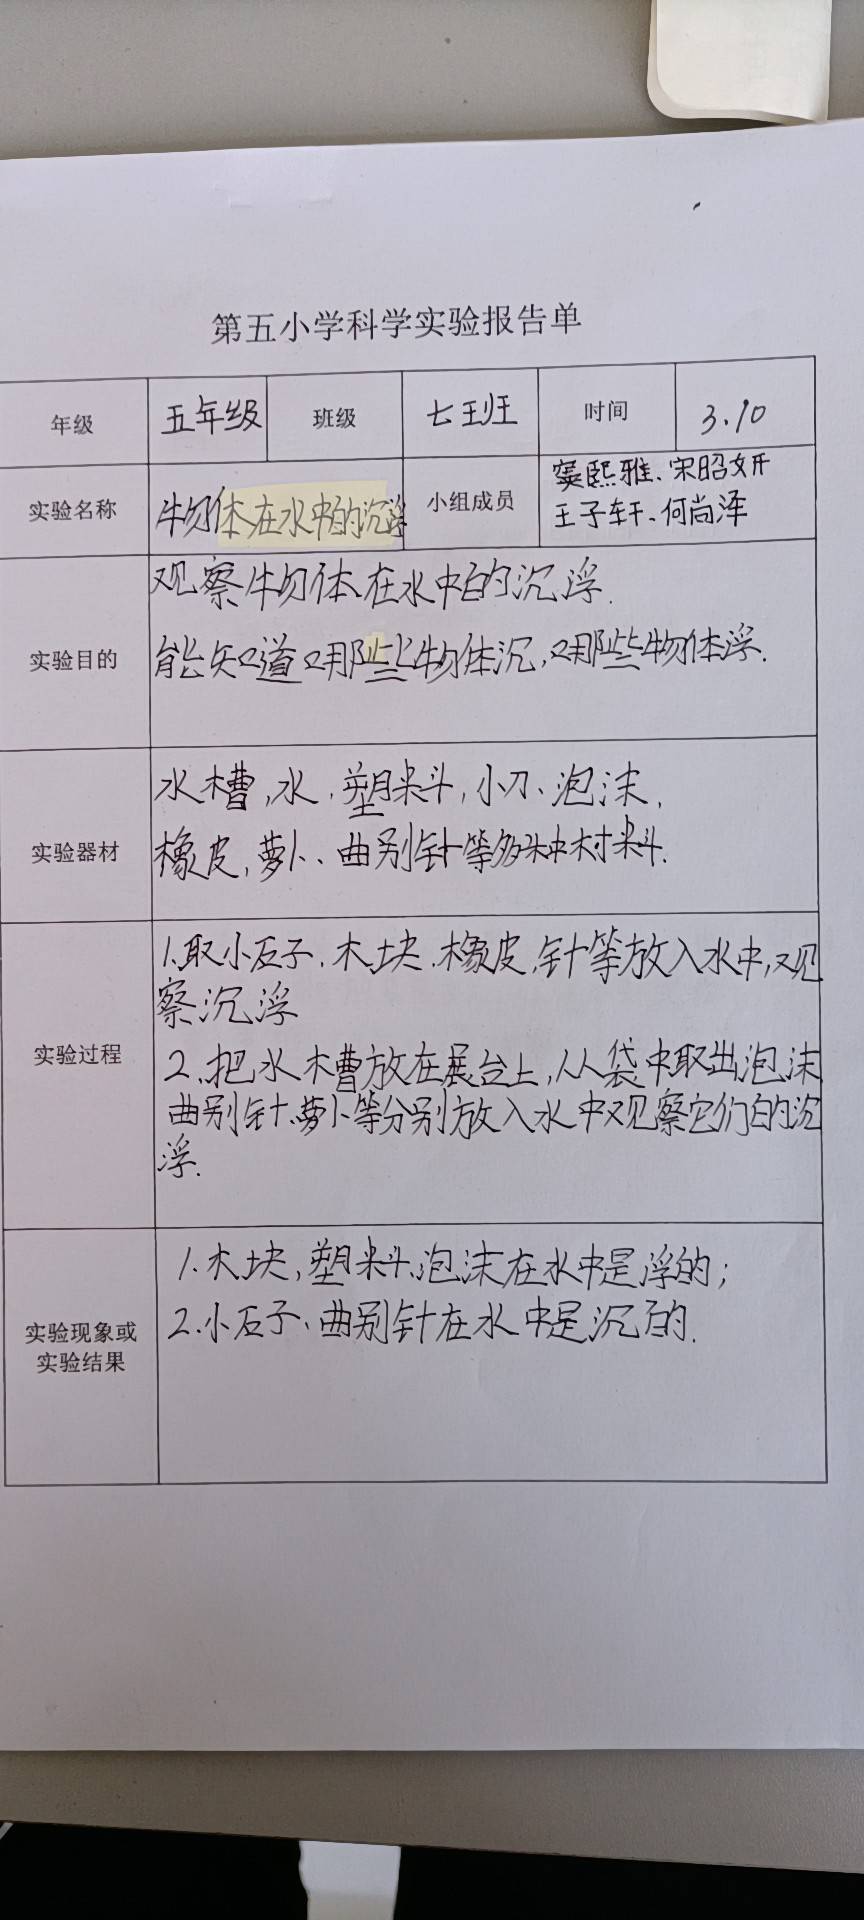 第五小学科学实验报告单
年级 五年级 班级 七班 时间 3.10
实验名称 物体在水中的沉浮 小组成员 窦熙雅、宋昭妍
王子轩、何尚泽
实验目的 观察物体在水中的沉浮.
能知道哪些物体沉,哪些物体浮.
实验器材 水槽,水,塑料,小刀、泡沫,
橡皮,萝卜、曲别针等多种材料.
实验过程 1.取小石子、木块.橡皮,针等放入水中,观
察沉浮
2.把水槽放在展台上,从袋中取出泡沫
曲别针、萝卜等分别放入水中观察它们的沉
浮.
实验现象或
实验结果
1.木块,塑料、泡沫在水中是浮的;
2.小石子、曲别针在水中是沉的.